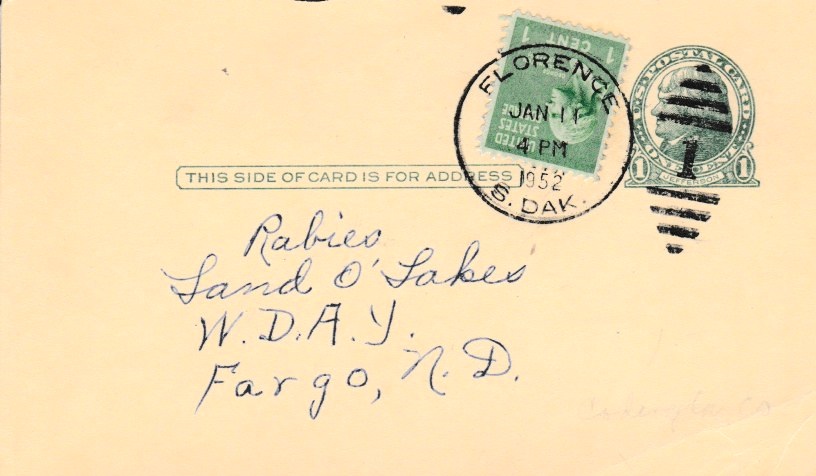 1 CENT 1
UNITED
STATES
POSTAGE
FLORENCE
JAN 11
4 PM
1952
S. DAK.
U.S. POSTAL CARD
1 ONE CENT 1
JEFFERSON
1
THIS SIDE OF CARD IS FOR ADDRESS
Rabies
Land O' Lakes
W.D.A.Y.
Fargo, N.D.